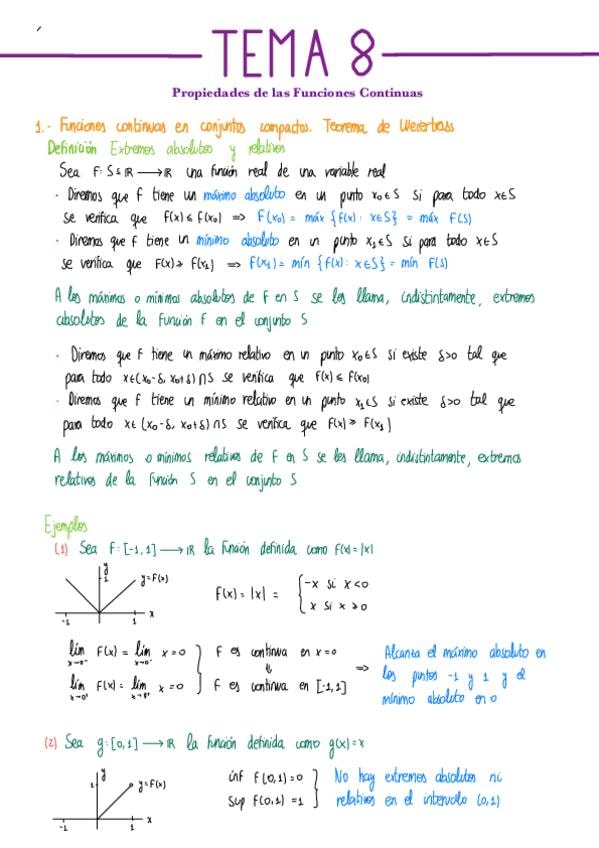 TEMA 8
Propiedades de las Funciones Continuas
1.- Funciones continuas en conjuntos compactos. Teorema de Weierstrass
Definición Extremos absolutos y relativos
Sea F: S ⊆ ℝ ⟶ ℝ una función real de una variable real
· Diremos que F tiene un máximo absoluto en un punto x₀ ∈ S si para todo x ∈ S
se verifica que F(x) ≤ F(x₀) ⇒ F(x₀) = máx {F(x) : x ∈ S} = máx F(S)
· Diremos que F tiene un mínimo absoluto en un punto x₁ ∈ S si para todo x ∈ S
se verifica que F(x) ≥ F(x₁) ⇒ F(x₁) = mín {F(x) : x ∈ S} = mín F(S)
A los máximos o mínimos absolutos de F en S se les llama, indistintamente, extremos
absolutos de la función F en el conjunto S
· Diremos que F tiene un máximo relativo en un punto x₀ ∈ S si existe δ>0 tal que
para todo x ∈ (x₀-δ, x₀+δ) ∩ S se verifica que F(x) ≤ F(x₀)
· Diremos que F tiene un mínimo relativo en un punto x₁ ∈ S si existe δ>0 tal que
para todo x ∈ (x₀-δ, x₀+δ) ∩ S se verifica que F(x) ≥ F(x₁)
A los máximos o mínimos relativos de F en S se les llama, indistintamente, extremos
relativos de la función S en el conjunto S
Ejemplos
(1) Sea F: [-1, 1] ⟶ ℝ la función definida como F(x) = |x|
y
1
y=F(x)
-1 1 x
F(x) = |x| = { -x si x<0
x si x ≥ 0
lím F(x) = lím x = 0 } F es continua en x=0
x→0⁻ x→0⁻
⇓
lím F(x) = lím x = 0 } F es continua en [-1, 1]
x→0⁺ x→0⁺
⇒ Alcanza el máximo absoluto en
los puntos -1 y 1 y el
mínimo absoluto en 0
(2) Sea g: [0, 1] ⟶ ℝ la función definida como g(x) = x
y
1
y=F(x)
-1 1 x
inf F(0,1) = 0
sup F(0,1) = 1
} No hay extremos absolutos ni
relativos en el intervalo (0,1)